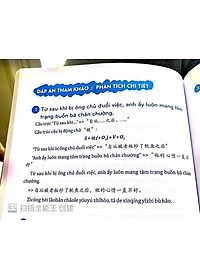 ĐÁP ÁN THAM KHẢO / PHÂN TÍCH CHI TIẾT
1 Từ sau khi bị ông chủ đuổi việc, anh ấy luôn mang tâm
trạng buồn bã chán chường.
Cấu trúc "Từ sau khi...." => "自从......之后, ......"
Cấu trúc câu bị động chữ "被":
S + 被 + (O₁) + V + O₂
"Từ sau khi bị ông chủ đuổi việc" => "自从被老板炒了鱿鱼之后"
"Anh ấy luôn mang tâm trạng buồn bã chán chường" => "他的心情一直不
Từ sau khi bị ông chủ đuổi việc, anh ấy luôn mang tâm trạng buồn bã chán
chường.
=> 自从被老板炒了鱿鱼之后, 他的心情一直不好。
Zìcóng bèi lǎobǎn chǎole yóuyú zhīhòu, tā de xīnqíng yīzhí bù hǎo.
扫描全能王 创建